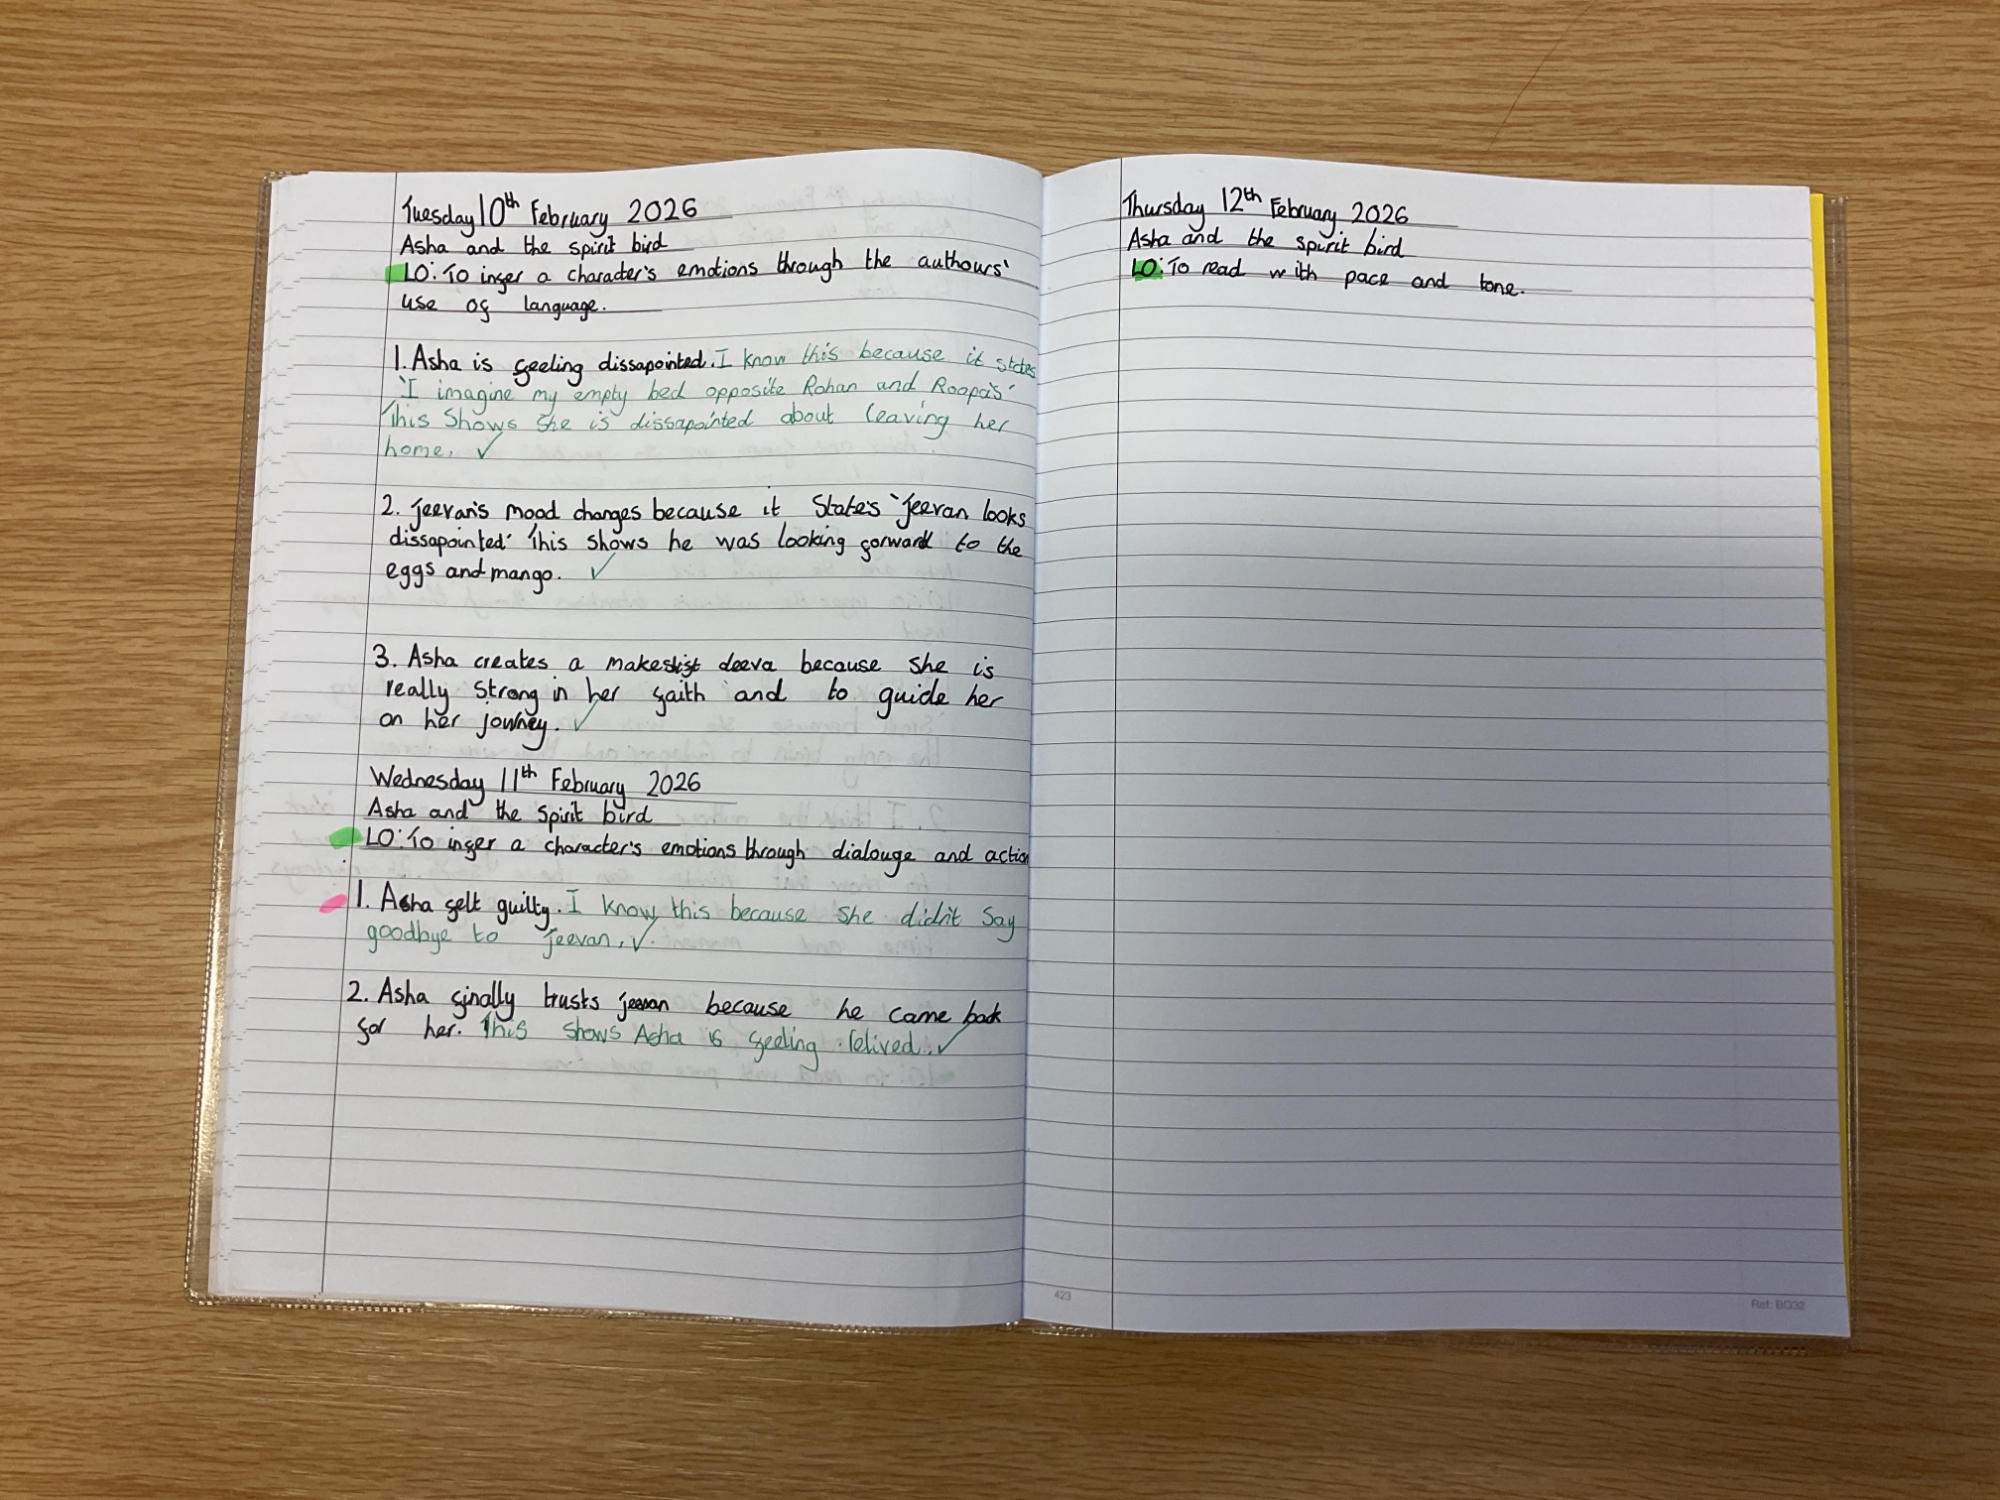 Tuesday 10th February 2026
Asha and the spirit bird
LO: To infer a character's emotions through the authours'
use of language.
1. Asha is feeling dissapointed. I know this because it states
'I imagine my empty bed opposite Rohan and Roopa's'
This Shows She is dissapointed about leaving her
home.
2. Jeevan's mood changes because it State's 'Jeevan looks
dissapointed' This shows he was looking forward to the
eggs and mango.
3. Asha creates a makeshift deeva because she is
really strong in her faith and to guide her
on her journey.
Wednesday 11th February 2026
Asha and the Spirit bird
LO: To infer a character's emotions through dialouge and action
1. Asha felt guilty. I know this because She didn't Say
goodbye to Jeevan.
2. Asha finally trusts Jeevan because he came back
for her. This shows Asha is feeling relived.
Thursday 12th February 2026
Asha and the spirit bird
LO: To read with pace and tone.
423
Ref: BO32